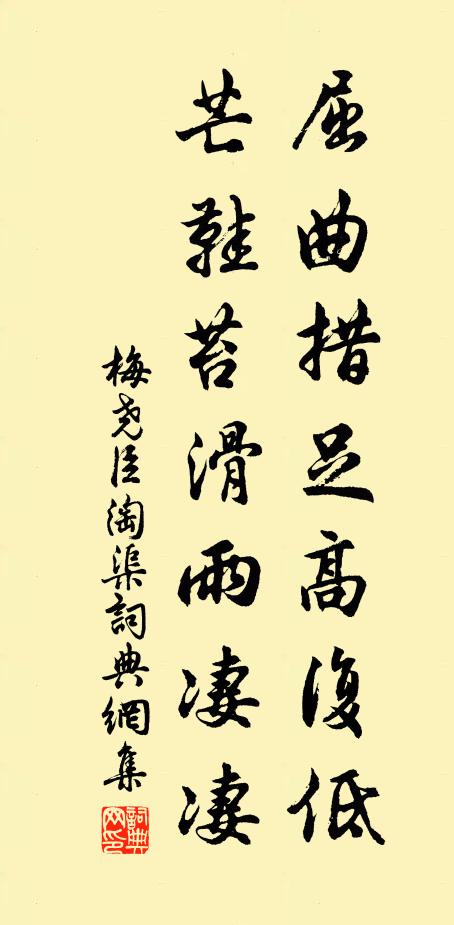 屈曲措足高復低
芒鞋苔滑雨凄凄
梅尧臣淘渠詞典網集
詞典網印